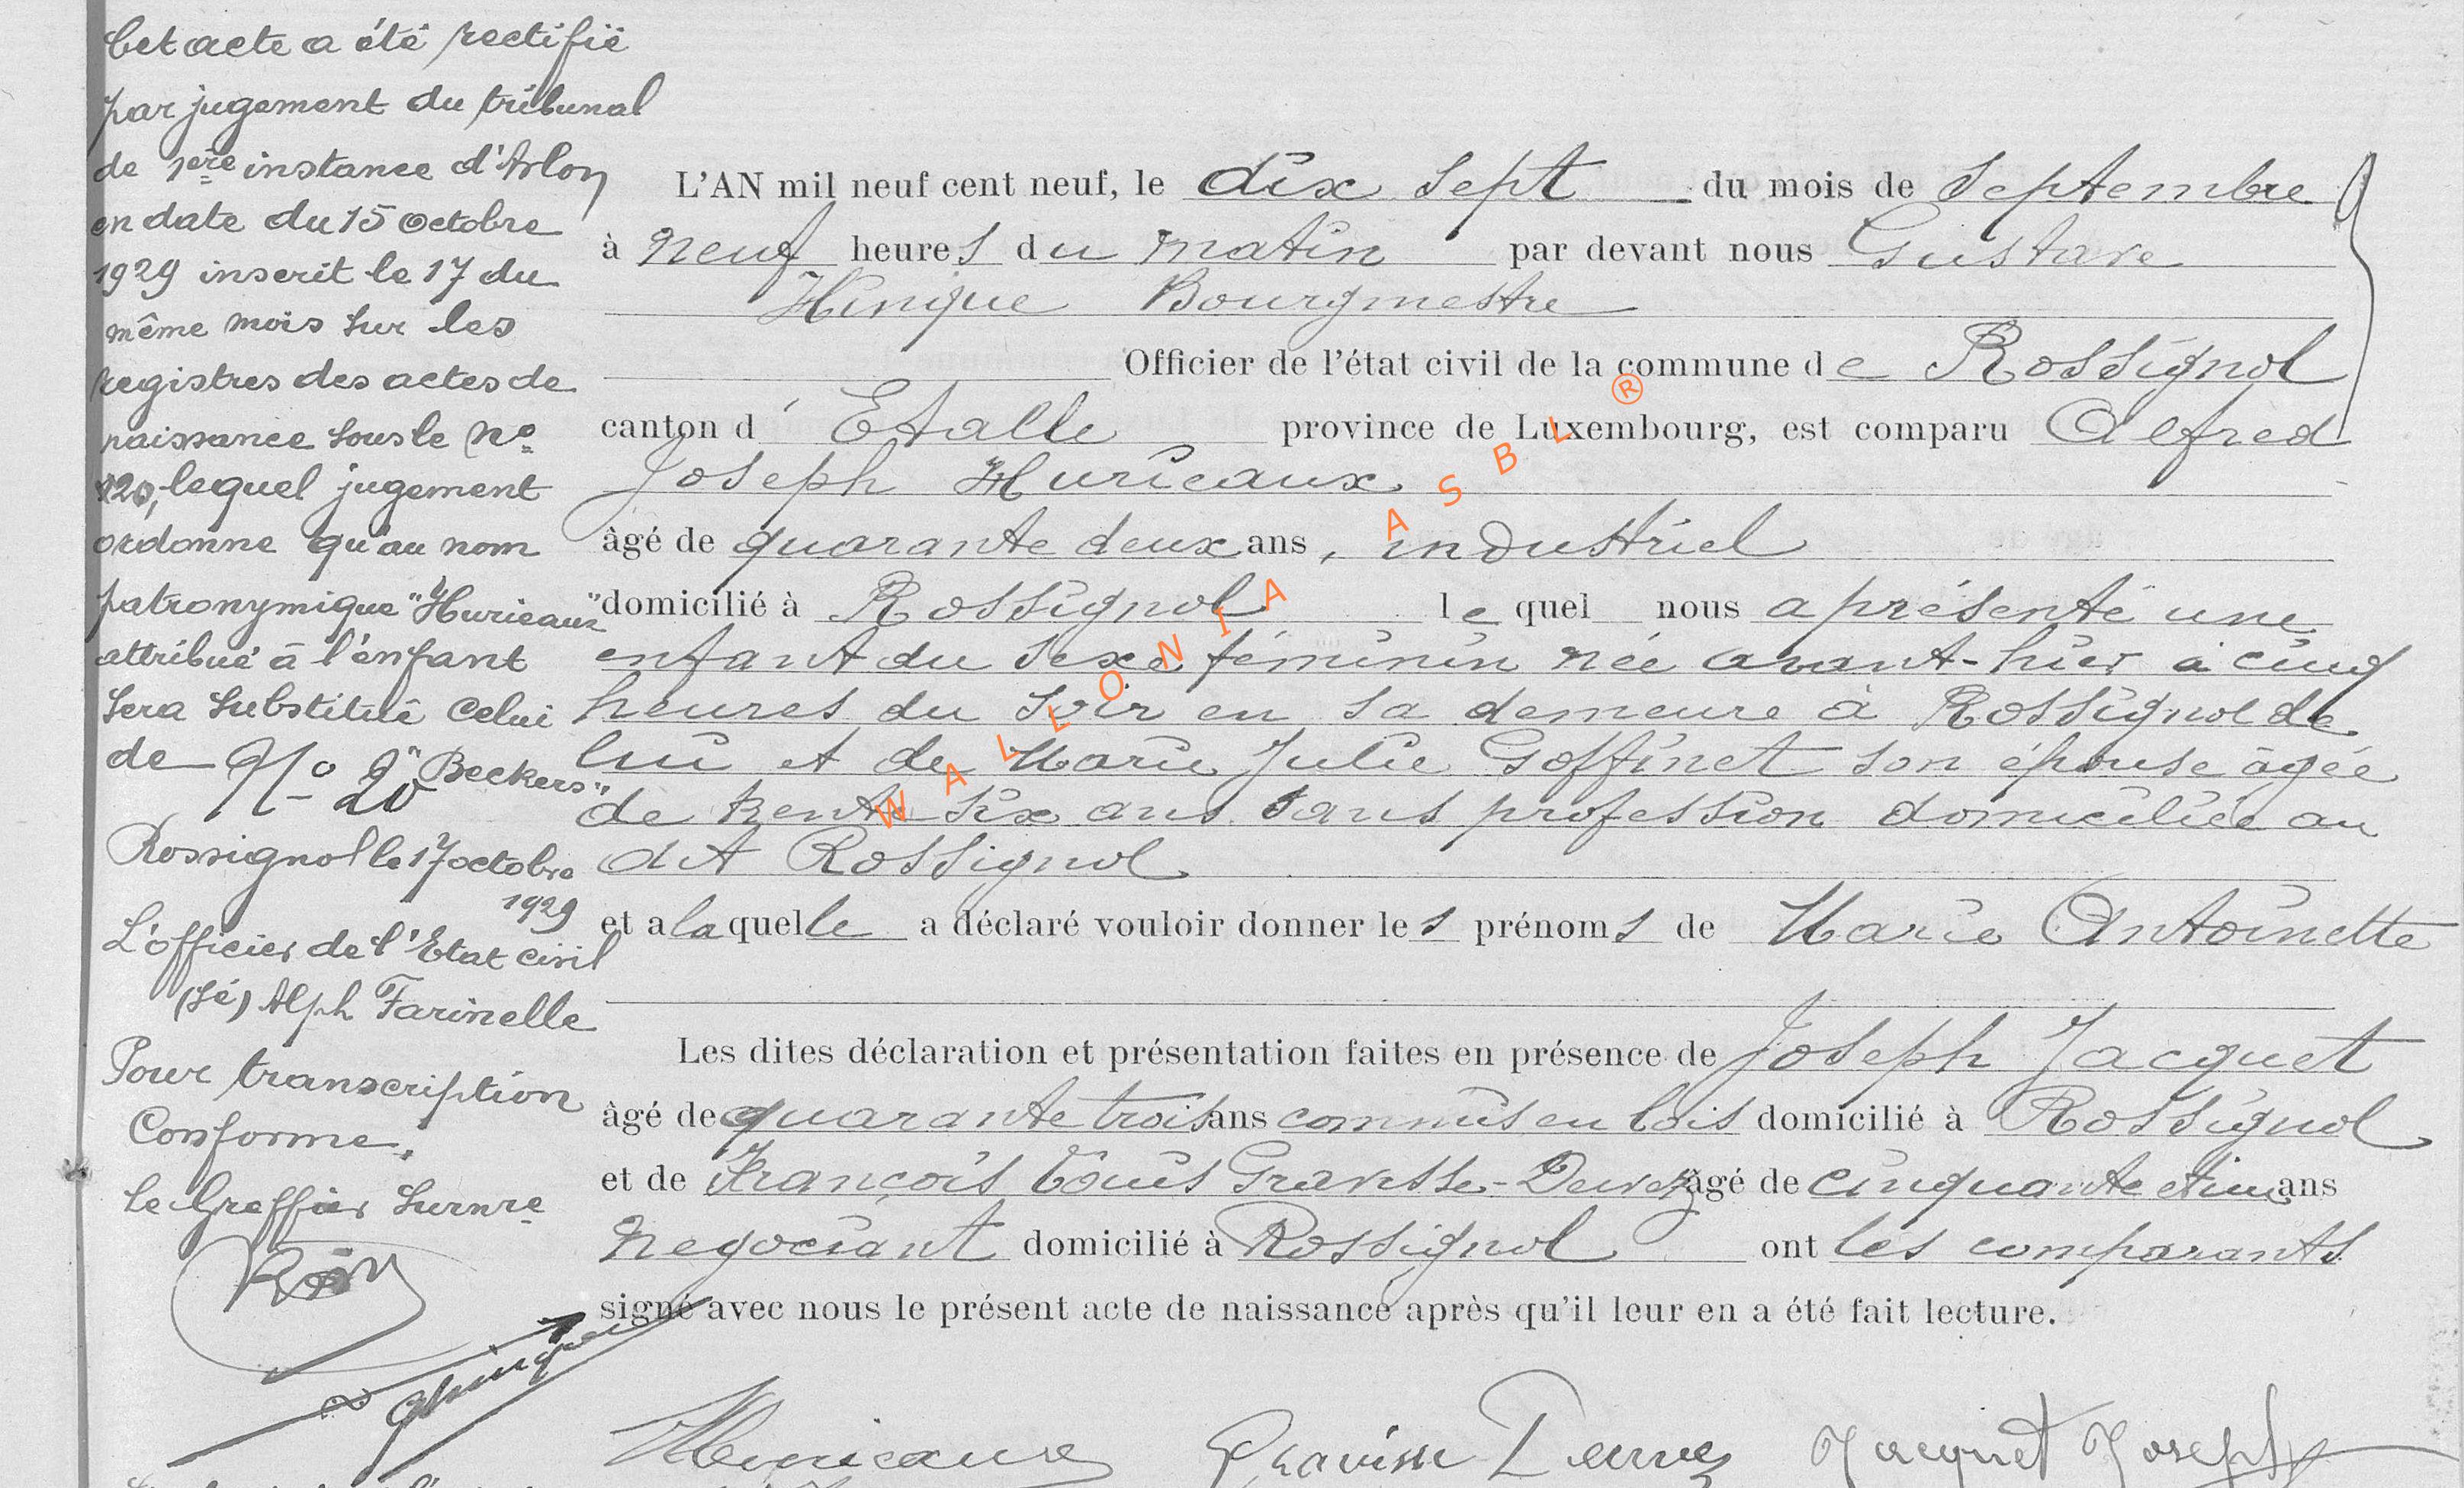 Cet acte a été rectifié
par jugement du tribunal
de 1ere instance d'Arlon
en date du 15 octobre
1929 inscrit le 17 du
même mois sur les
registres des actes de
naissance sous le No
20, lequel jugement
ordonne qu'au nom
patronymique "Hurieaux"
attribué à l'enfant
sera substitué celui
de "Beckers"
No 20
Rossignol le 17 octobre
1929
L'officier de l'Etat civil
(sé) Alph Farinelle
Pour transcription
Conforme,
le Greffier surnre
L'AN mil neuf cent neuf, le dix sept du mois de Septembre
à neuf heures du matin par devant nous Gustave
Hinque Bourgmestre
Officier de l'état civil de la commune de Rossignol
canton d'Etalle province de Luxembourg, est comparu Alfred
Joseph Hurieaux
âgé de quarante deux ans, industriel
domicilié à Rossignol le quel nous a présenté une
enfant du sexe féminin née avant-hier à cinq
heures du soir en sa demeure à Rossignol de
lui et de Marie Julie Goffinet son épouse âgée
de trente six ans sans profession domiciliée au
dit Rossignol
et a laquelle a déclaré vouloir donner les prénoms de Marie Antoinette
Les dites déclaration et présentation faites en présence de Joseph Jacquet
âgé de quarante trois ans commis en bois domicilié à Rossignol
et de François Louis Gravisse-Dervez âgé de cinquante et un ans
negociant domicilié à Rossignol ont les comparants
signé avec nous le présent acte de naissance après qu'il leur en a été fait lecture.
Hurieaux Gravisse Dervez Jacquet Joseph
WALLONIA ASBL ®